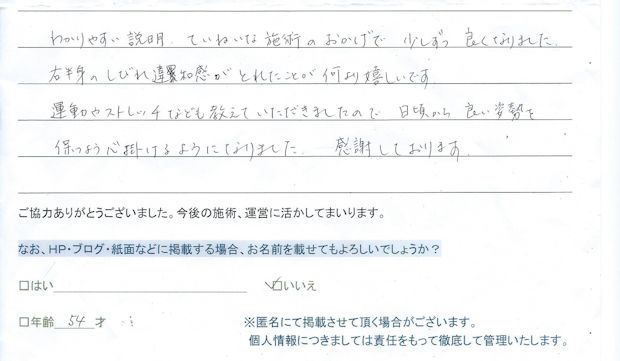 わかりやすい説明、ていねいな施術のおかげで 少しずつ 良くなりました。
右半身のしびれ違和感がとれたことが何より嬉しいです。
運動やストレッチなども教えていただきましたので 日頃から 良い姿勢を
保つよう心掛けるようになりました。 感謝しております。
ご協力ありがとうございました。今後の施術、運営に活かしてまいります。
なお、HP・ブログ・紙面などに掲載する場合、お名前を載せてもよろしいでしょうか？
□はい ☑いいえ
□年齢 54 才
※匿名にて掲載させて頂く場合がございます。
個人情報につきましては責任をもって徹底して管理いたします。